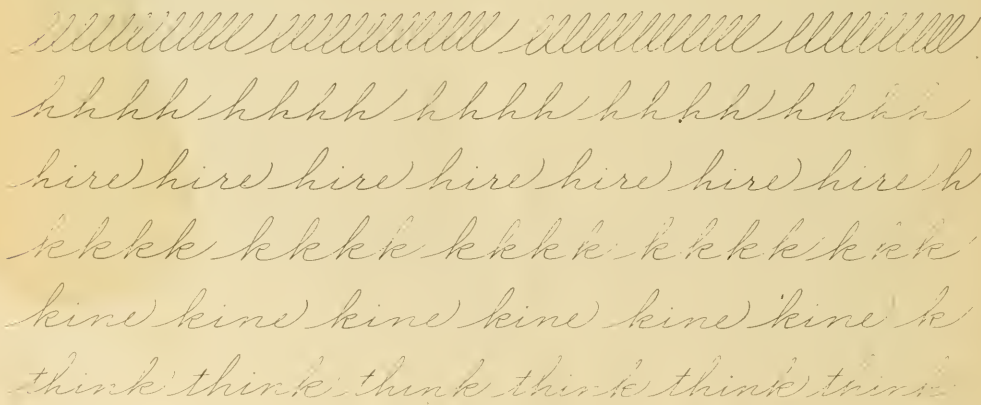 llllllllllll llllllllllll llllllllllll llllllllll
hhhh hhhh hhhh hhhh hhhhh
hire hire hire hire hire hire hire h
kkkk kkkkk kkkkk kkkkk kkk
kine kine kine kine kine kine k
think think think think think think